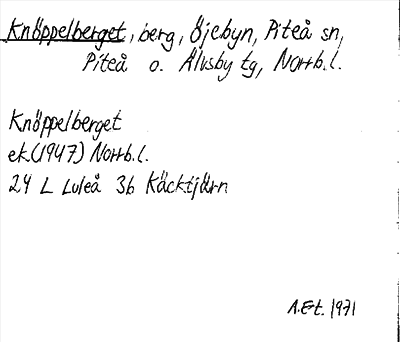 Knöppelberget, berg, Öjebyn, Piteå sn,
Piteå o. Älvsby tg, Norrb.l.
Knöppelberget
ek.(1947) Norrb.l.
24 L Luleå 3b Käcktjärn
A.Et. 1971